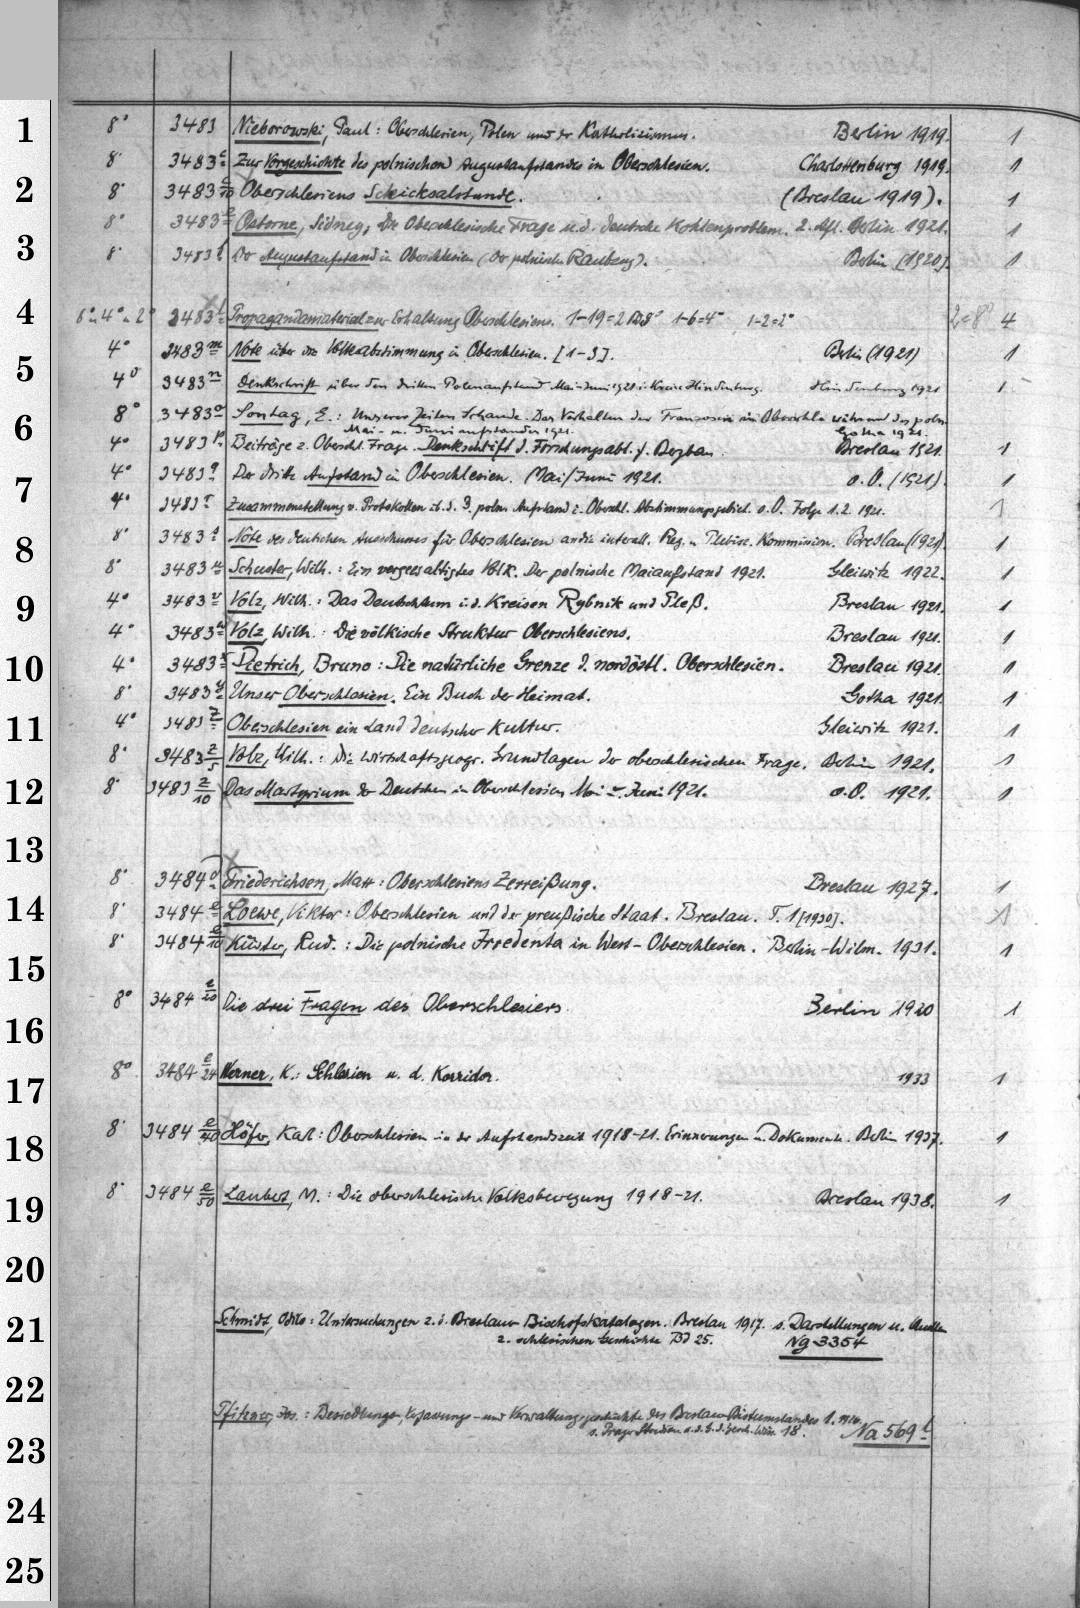 1
8° 3483 Nieborowski, Paul: Oberschlesien, Polen und der Katholizismus. Berlin 1919. 1
8° 3483 Zur Vorgeschichte des polnischen Augustaufstandes in Oberschlesien. Charlottenburg 1919. 1
2
8° 3483 Oberschlesiens Schicksalsstunde. (Breslau 1919). 1
8° 3483 Osborne, Sidney, Die Oberschlesische Frage u.d. deutsche Kohlenproblem. 2. Afl. Berlin 1921. 1
3
8° 3483 Der Augustaufstand in Oberschlesien (Der polnische Raubzug). Berlin [1920]. 1
4
8° u. 4° u. 2° 3483 l Propagandamaterial zur Erhaltung Oberschlesiens. 1-19=8° 1-6=4° 1-2=2° 2=8° 4
4° 3483 m Note über die Volksabstimmung in Oberschlesien. [1-3]. Berlin (1921) 1
5
4° 3483 n Denkschrift über den dritten Polenaufstand Mai-Juni 1921 i. Kreise Hindenburg. Hindenburg 1921 1
6
8° 3483 o Sontag, E.: Unserer Zeiten Schande. Das Verhalten der Franzosen in Oberschle während des poln.
Mai- u. Juniaufstandes 1921. Gotha 1921.
4° 3483 p. Beiträge z. Oberschl. Frage. Denkschrift d. Forschungsabt. f. Bergbau. Breslau 1921. 1
7
4° 3483 q Der dritte Aufstand in Oberschlesien. Mai/Juni 1921. o.O. (1921). 1
4° 3483 r Zusammenstellung v. Protokollen üb. d. 3. poln. Aufstand i. Oberschl. Abstimmungsgebiet. o.O. Folge 1.2. 1921. 1
8
8° 3483 s Note des deutschen Ausschusses für Oberschlesien an die interall. Reg. u. Plebisz. Kommission. Breslau (1921). 1
8° 3483 u Schuster, Wilh.: Ein vergewaltigtes Volk. Der polnische Maiaufstand 1921. Gleiwitz 1922. 1
9
4° 3483 v Volz, Wilh.: Das Deutschtum i.d. Kreisen Rybnik und Pleß. Breslau 1921. 1
4° 3483 w Volz, Wilh.: Die völkische Struktur Oberschlesiens. Breslau 1921. 1
10
4° 3483 x Dietrich, Bruno: Die natürliche Grenze d. nordöstl. Oberschlesien. Breslau 1921. 1
8° 3483 y Unser Oberschlesien. Ein Buch der Heimat. Gotha 1921. 1
11
4° 3483 z Oberschlesien ein Land deutscher Kultur. Gleiwitz 1921. 1
8° 3483 z/5 Volz, Wilh.: Die wirtschaftsgeogr. Grundlagen der oberschlesischen Frage. Berlin 1921. 1
12
8° 3483 z/10 Das Martyrium der Deutschen in Oberschlesien Mai u. Juni 1921. o.O. 1921. 1
13
8° 3484 d Friederichsen, Max: Oberschlesiens Zerreißung. Breslau 1927. 1
14
8° 3484 e Loewe, Viktor: Oberschlesien und der preußische Staat. Breslau. T. 1 [1930]. 1
8° 3484 e/10 Küster, Rud.: Die polnische Irredenta in West-Oberschlesien. Berlin-Wilm. 1931. 1
15
8° 3484 e/20 Die drei Fragen des Oberschlesiers. Berlin 1920 1
16
8° 3484 e/24 Werner, K.: Schlesien u. d. Korridor. 1933 1
17
8° 3484 e/40 Höfer, Karl: Oberschlesien in der Aufstandszeit 1918-21. Erinnerungen u. Dokumente. Berlin 1937. 1
18
8° 3484 e/50 Laubert, M.: Die oberschlesische Volksbewegung 1918-21. Breslau 1938. 1
19
20
21
Schmidt, Otto: Untersuchungen z. d. Breslauer Bischofskatalogen. Breslau 1917. s. Darstellungen u. Quellen
z. schlesischen Geschichte Bd 25. Ng 3354
22
Pfitzner, Jos.: Besiedlungs-, Verfassungs- und Verwaltungsgeschichte des Breslauer Bistumslandes 1. 1926.
s. Prager Studien a.d.G.d. Gesch. Wiss. 18. Na 569 t
23
24
25